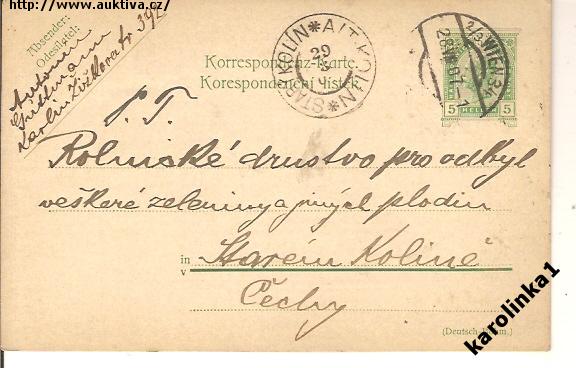 www.auktiva.cz
Absender:
Odesílatel:
Antonín
Karlín Žižkova tř 392
Korrespondenz-Karte.
Korespondenční lístek.
ALT KOLIN * STARÝ KOLÍN *
29
WIEN
5 HELLER 5
P. T.
Rolnické družstvo pro odbyt
veškeré zeleniny a jiných plodin
in
v
Starém Kolíně
Čechy
(Deutsch-
karolinka1